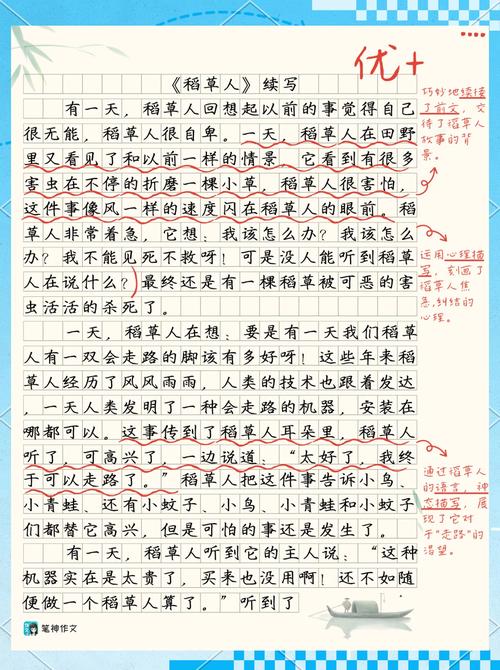 优+
《稻草人》续写
有一天，稻草人回想起以前的事觉得自己
很无能，稻草人很自卑。一天，稻草人在田野
里又看见了和以前一样的情景，它看到有很多
害虫在不停的折磨一棵小草，稻草人很害怕，
这件事像风一样的速度闪在稻草人的眼前。稻
草人非常着急，它想：我该怎么办？我该怎么
办？我不能见死不救呀！可是没人能听到稻草
人在说什么？最终还是有一棵稻草被可恶的害
虫活活的杀死了。
一天，稻草人在想：要是有一天我们稻草
人有一双会走路的脚该有多好呀！这些年来稻
草人经历了风风雨雨，人类的技术也跟着发达
，一天人类发明了一种会走路的机器，安装在
哪都可以。这事传到了稻草人耳朵里，稻草人
听了，可高兴了，一边说道：“太好了，我终
于可以走路了。”稻草人把这件事告诉小鸟、
小青蛙、还有小蚊子、小鸟、小青蛙和小蚊子
们都替它高兴，但是可怕的事还是发生了。
有一天，稻草人听到它的主人说：“这种
机器实在是太贵了，买来也没用啊！还不如随
便做一个稻草人算了。”听到了
巧妙地续接
了前文，交
待了稻草人
故事的背
景。
运用心理描
写，刻画了
稻草人焦
急，纠结的
心理。
通过稻草人
的语言，神
态描写，展
现了它对
于“走路”的
渴望。
笔神作文